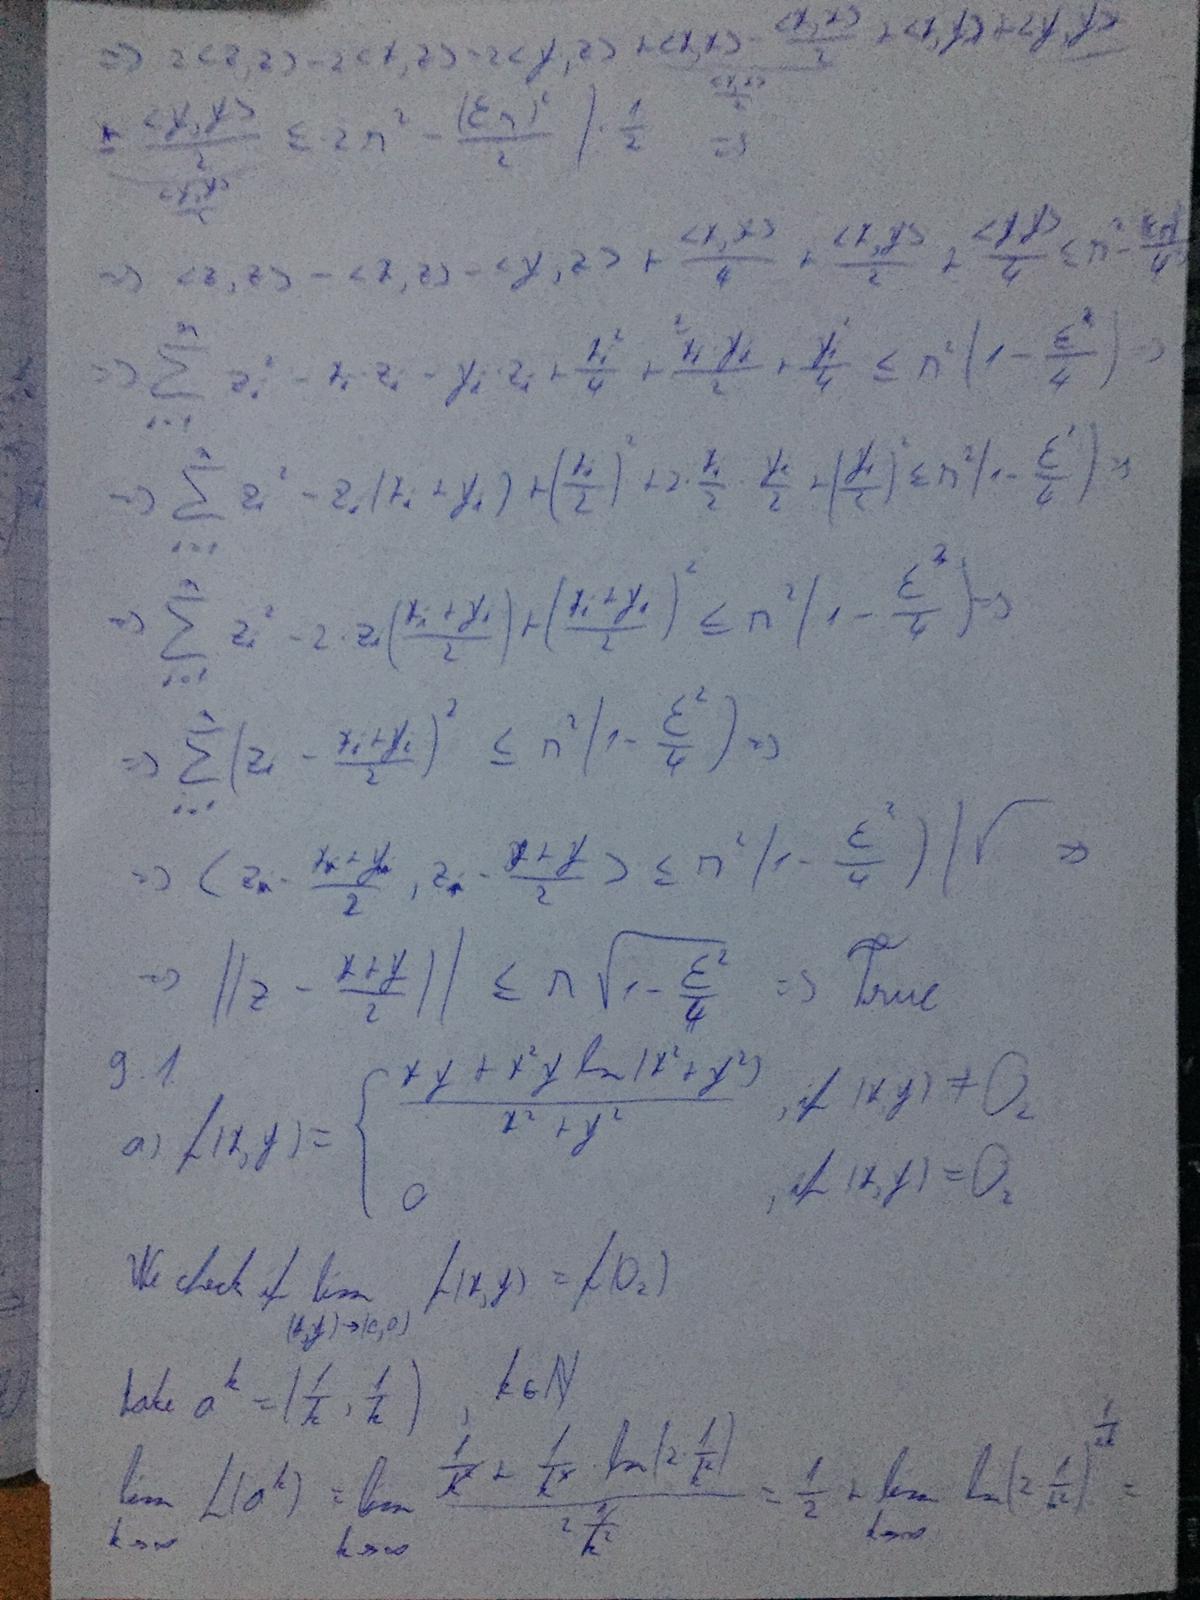 => 2<z,z> - 2<x,z> - 2<y,z> + <x,x> - <x,x>/2 + <x,y> + <y,y>
<x,x>/2
- <y,y>/2 ≤ 2r² - (εr)²/2 | · 1/2 =>
<y,y>/2
=> <z,z> - <x,z> - <y,z> + <x,x>/4 + <x,y>/2 + <y,y>/4 ≤ r² - (εr)²/4
=> ∑_{i=1}^{n} z_i² - x_i·z_i - y_i·z_i + x_i²/4 + x_i·y_i/2 + y_i²/4 ≤ r²(1 - ε²/4) =>
=> ∑_{i=1}^{n} z_i² - z_i(x_i + y_i) + (x_i/2)² + 2·x_i/2·y_i/2 + (y_i/2)² ≤ r²(1 - ε²/4) =>
=> ∑_{i=1}^{n} z_i² - 2·z_i((x_i + y_i)/2) + ((x_i + y_i)/2)² ≤ r²(1 - ε²/4) =>
=> ∑_{i=1}^{n} (z_i - (x_i + y_i)/2)² ≤ r²(1 - ε²/4) =>
=> <z - (x+y)/2, z - (x+y)/2> ≤ r²(1 - ε²/4) | √ =>
=> ||z - (x+y)/2|| ≤ r√(1 - ε²/4) => True
9.1.
a) f(x,y) = { (xy + x²y ln(x²+y²))/(x²+y²) , if (x,y) ≠ 0₂
0 , if (x,y) = 0₂
We check if lim_{(x,y)→(0,0)} f(x,y) = f(0₂)
take a^k = (1/k, 1/k) , k ∈ ℕ
lim_{k→∞} f(a^k) = lim_{k→∞} (1/k² + 1/k³ · ln(2·1/k²))/(2/k²) = 1/2 + lim_{k→∞} ln(2·1/k²)^{1/2k} =